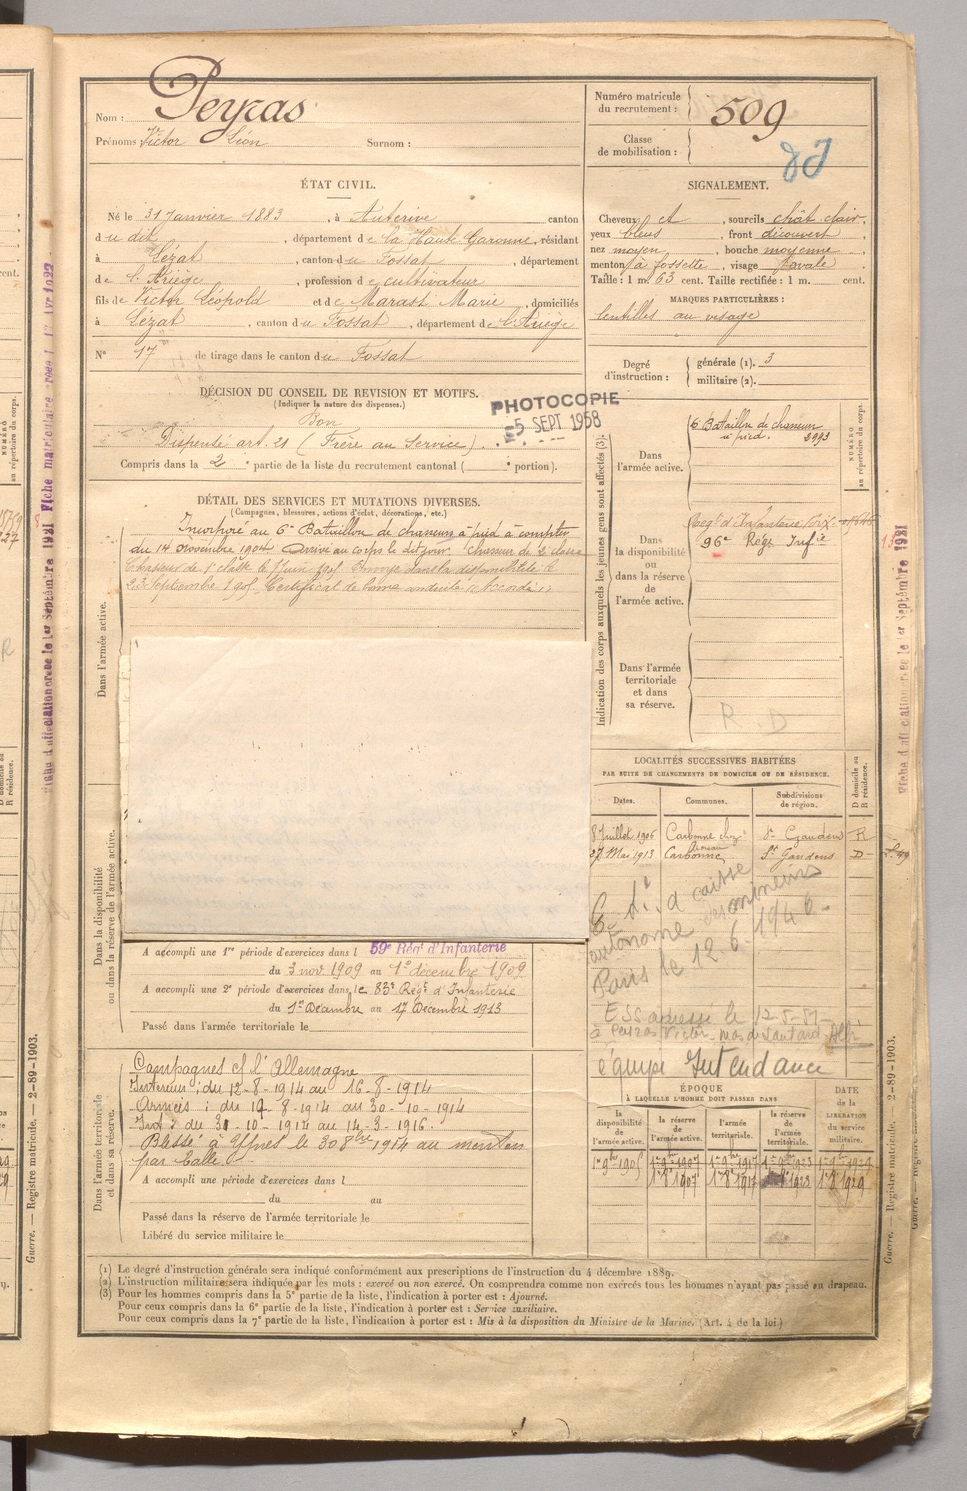 Nom : Peyras
Prénoms Victor Léon Surnom :
Numéro matricule du recrutement : 509
Classe de mobilisation :
ÉTAT CIVIL.
Né le 31 Janvier 1883, à Auterive canton
du dit, département de la Haute Garonne, résidant
à Lézat, canton du Fossat, département
de l'Ariège, profession de cultivateur
fils de Victor Léopold et de Marast Marie, domiciliés
à Lézat, canton du Fossat, département de l'Ariège
N° 17 de tirage dans le canton du Fossat
SIGNALEMENT.
Cheveux et, sourcils chât. clair,
yeux bleus, front découvert
nez moyen, bouche moyenne,
menton à fossette, visage ovale
Taille : 1 m. 63 cent. Taille rectifiée : 1 m. cent.
MARQUES PARTICULIÈRES :
lentilles au visage
Degré d'instruction : générale (1). 3
militaire (2).
DÉCISION DU CONSEIL DE REVISION ET MOTIFS.
(Indiquer la nature des dispenses.)
Bon
Dispensé art. 21 (Frère au Service).
Compris dans la 2e partie de la liste du recrutement cantonal ( e portion).
PHOTOCOPIE
5 SEPT 1958
DÉTAIL DES SERVICES ET MUTATIONS DIVERSES.
(Campagnes, blessures, actions d'éclat, décorations, etc.)
Dans l'armée active.
Incorporé au 6e Bataillon de chasseurs à pied à compter
du 14 Novembre 1904 Arrivé au corps le dit jour. Chasseur de 2e classe
Chasseur de 1e classe le 1905 Envoyé dans la disponibilité le
23 Septembre 1905. Certificat de bonne conduite Accordé
Indication des corps auxquels les jeunes gens sont affectés (3).
NUMÉRO au répertoire du corps.
Dans l'armée active.
6 Bataillon de chasseurs
à pied. 2993
Dans la disponibilité ou dans la réserve de l'armée active.
Regt d'Infanterie
96e Régt Infie
Dans l'armée territoriale et dans sa réserve.
R.D
LOCALITÉS SUCCESSIVES HABITÉES
PAR SUITE DE CHANGEMENTS DE DOMICILE OU DE RÉSIDENCE.
Dates. Communes. Subdivisions de région. D domicile ou R résidence.
8 Juillet 1906 Carbonne St Gaudens R
27 Mai 1913 Carbonne St Gaudens D
caisse
autonome des mineurs
Paris le 12.6.1946
adressé le 12-5-
à Peyras Victor
équipe Intendance
Dans la disponibilité ou dans la réserve de l'armée active.
A accompli une 1re période d'exercices dans l 59e Régt d'Infanterie
du 3 nov 1909 au 1e décembre 1909
A accompli une 2e période d'exercices dans le 83e Régt d'Infanterie
du 1er Décembre au 17 Décembre 1913
Passé dans l'armée territoriale le
Dans l'armée territoriale et dans sa réserve.
Campagnes c/ l'Allemagne
Intérieur : du 12-8-1914 au 16-8-1914
Armées : du 17-8-1914 au 30-10-1914
Int : du 31-10-1914 au 14-3-1916.
Blessé à Ypres le 30 8bre 1914 au menton
par balle
A accompli une période d'exercices dans l
du au
Passé dans la réserve de l'armée territoriale le
Libéré du service militaire le
ÉPOQUE
À LAQUELLE L'HOMME DOIT PASSER DANS
la disponibilité de l'armée active. la réserve de l'armée active. l'armée territoriale. la réserve de l'armée territoriale.
DATE de la LIBÉRATION du service militaire.
1er 9bre 1905 1er 9bre 1907 1er 9bre 1917 1er 9bre 1923 1er 9bre 1929
1er 8 1907 1er 8 1917 1928 1er 8 1929
(1) Le degré d'instruction générale sera indiqué conformément aux prescriptions de l'instruction du 4 décembre 1889.
(2) L'instruction militaire sera indiquée par les mots : exercé ou non exercé. On comprendra comme non exercés tous les hommes n'ayant pas passé au drapeau.
(3) Pour les hommes compris dans la 5e partie de la liste, l'indication à porter est : Ajourné.
Pour ceux compris dans la 6e partie de la liste, l'indication à porter est : Service auxiliaire.
Pour ceux compris dans la 7e partie de la liste, l'indication à porter est : Mis à la disposition du Ministre de la Marine. (Art. 4 de la loi.)
Guerre. — Registre matricule. — 2-89-1903.